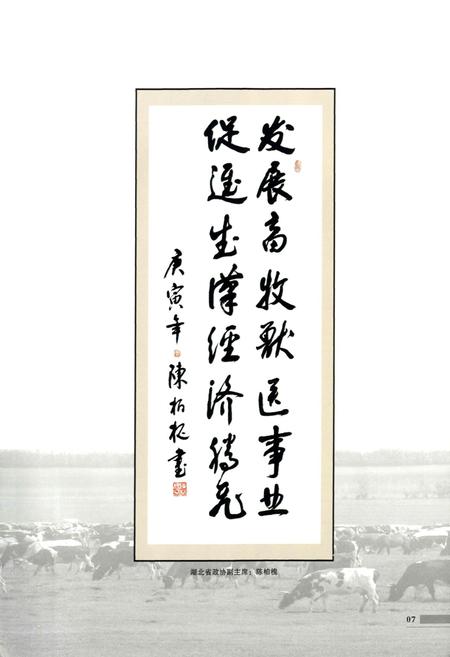 发展畜牧兽医事业
促進武漢經济腾飞
庚寅年 陳柏槐書
湖北省政协副主席：陈柏槐
07